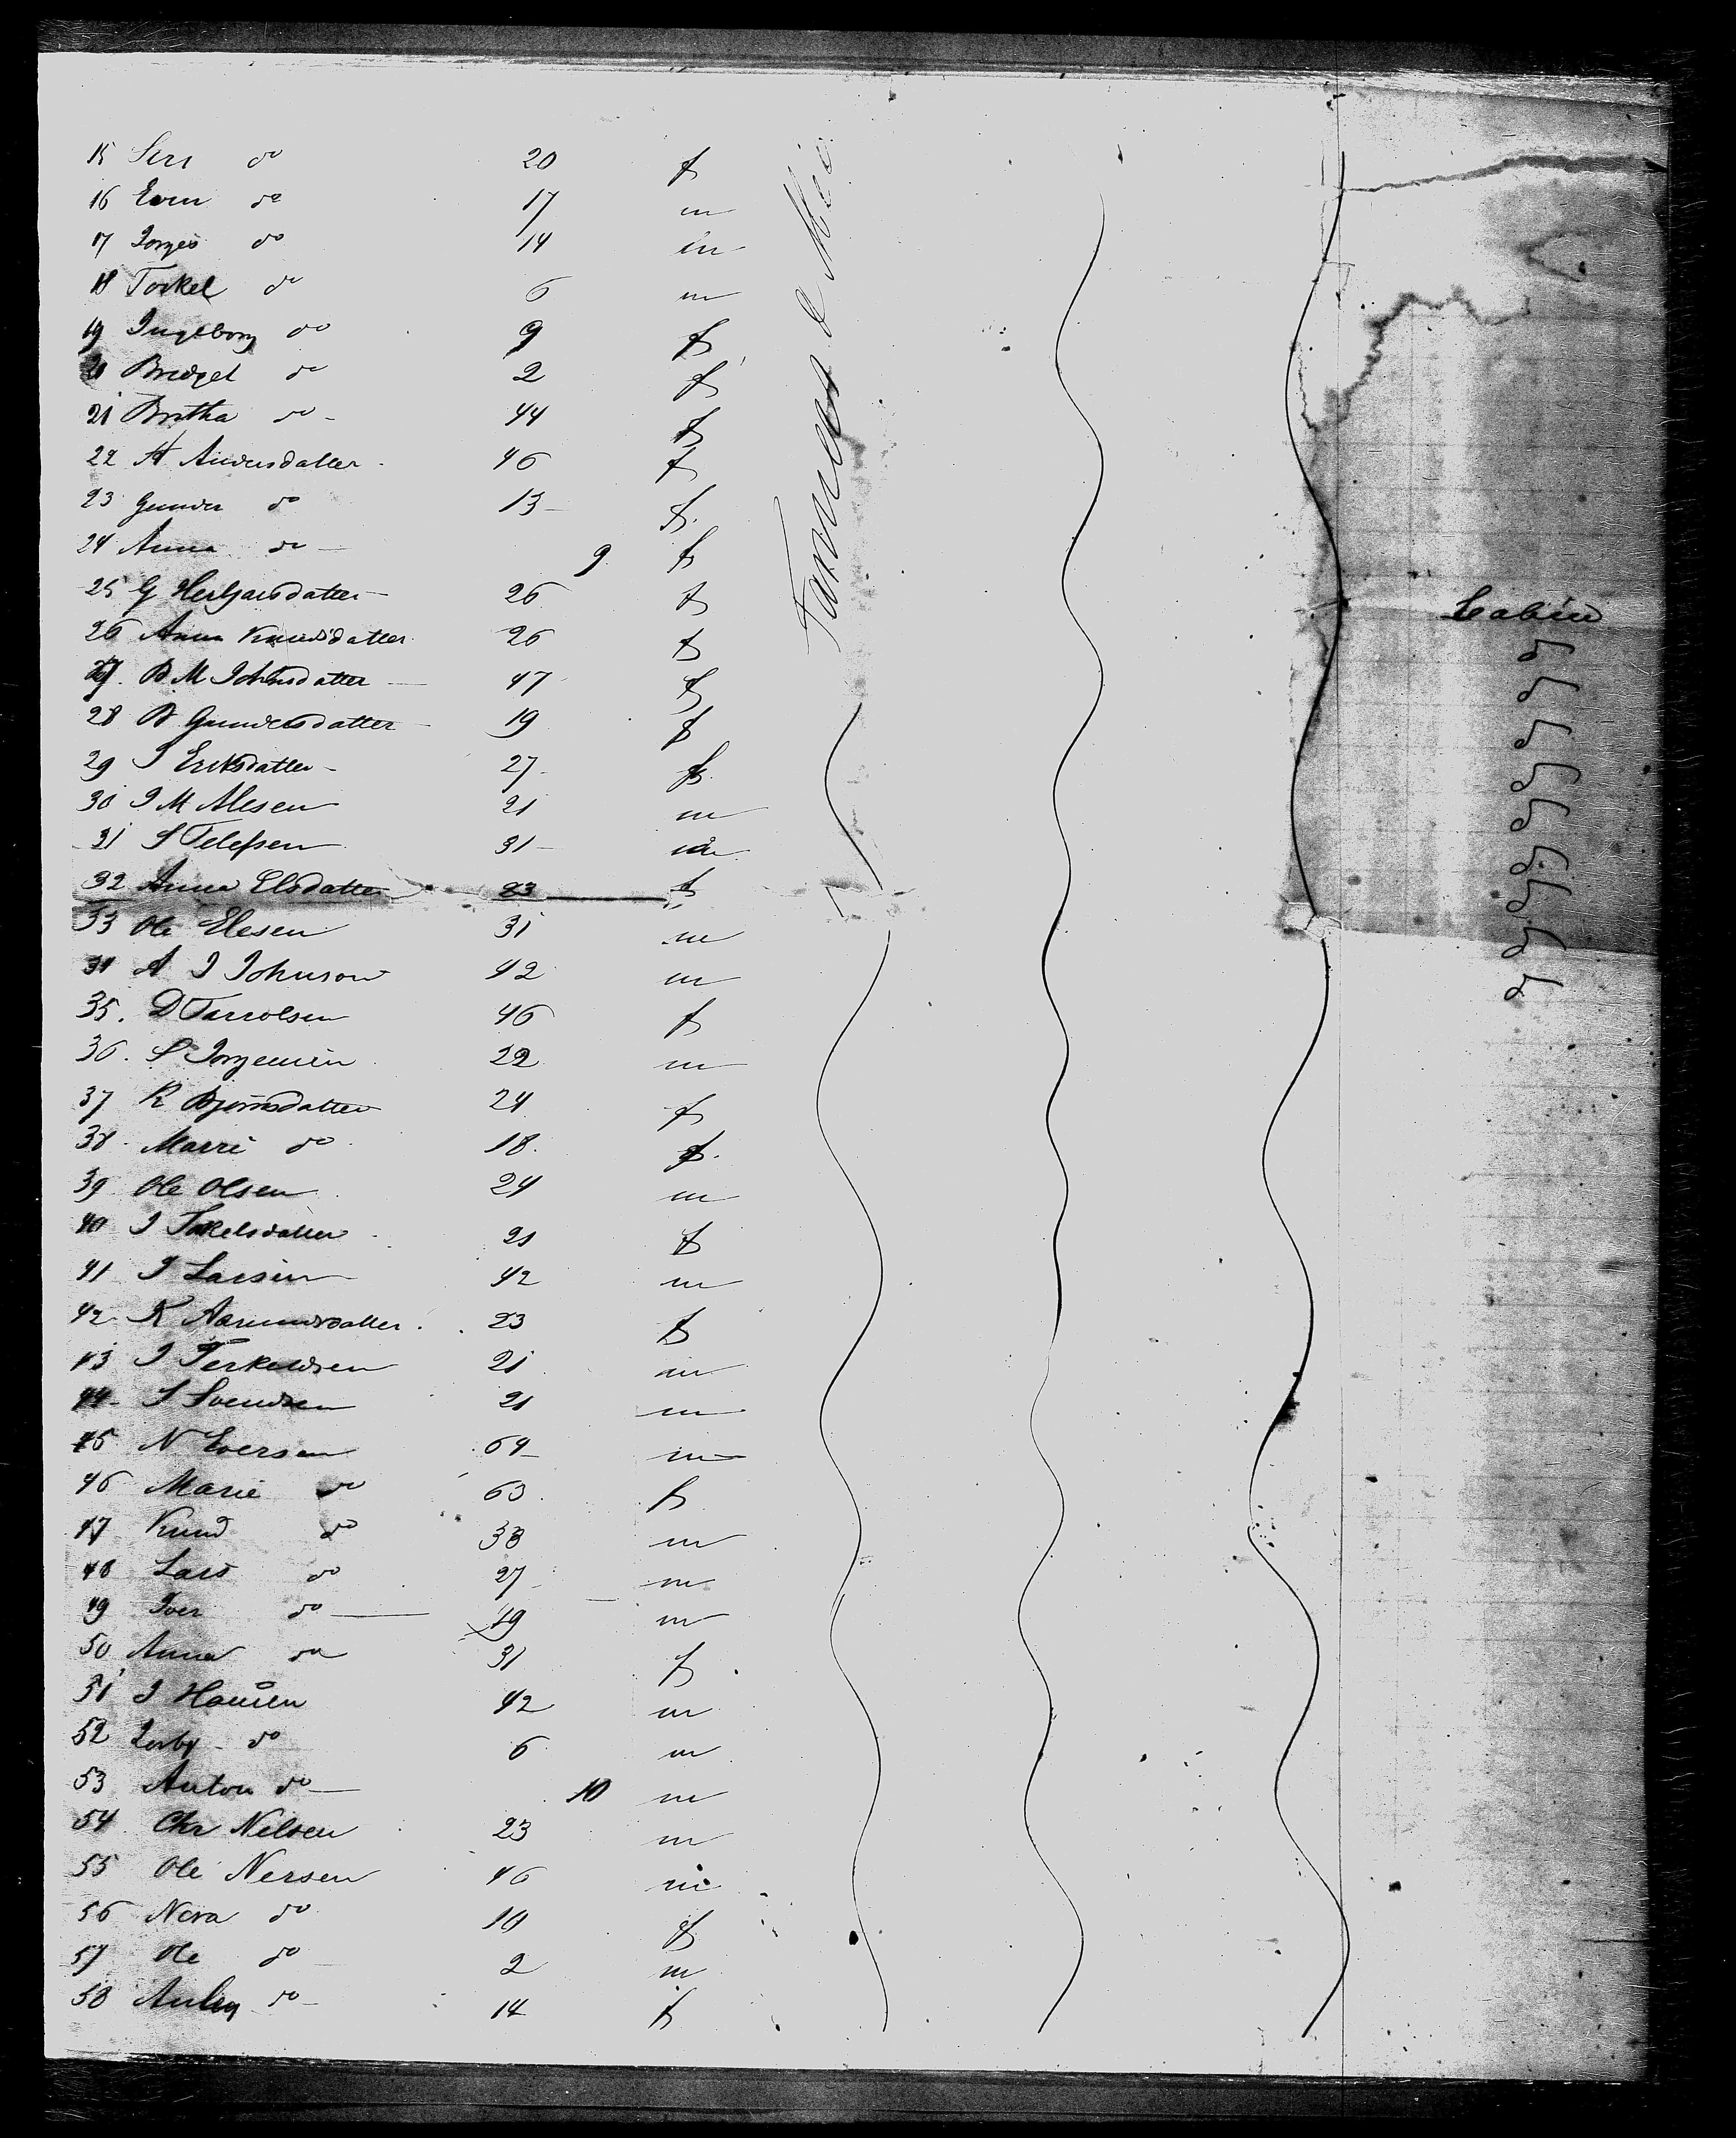 15 Siri do 20 f
16 Even do 17 m
17 Jorges do 14 m
18 Torkel do 6 m
19 Ingeborg do 9 f
20 Bredget do 2 f
21 Britha do 44 f
22 A Andersdatter 46 f
23 Gunder do 13 f
24 Anna do 9 f
25 G 26 f
26 Anna Knudsdatter 26 f
27. B M Johnsdatter 47 f
28 B Gundersdatter 19 f
29 I Eriksdatter 27 f
30 I M Alesen 21 m
31 S Telefsen 31 m
32 Anna Elsdatter 23 f
33 Ole Elesen 31 m
34 A I Johnson 42 m
35. D Tarrolsen 46 f
36. S Jorgensen 22 m
37 K Bjornsdatter 24 f
38 Marri do 18 f
39 Ole Olsen 24 m
40 I Torkelsdatter 21 f
41 I Larsen 42 m
42 K Aamundsdatter 23 f
43 I Terkeldsen 21 m
44 S Svendsen 21 m
45 N Eversen 64 m
46 Marie do 63 f
47 Knud do 33 m
48 Lars do 27 m
49 Iver do 19 m
50 Anna do 31 f
51 I Hansen 42 m
52 do 6 m
53 Anton do 10 m
54 Chr Nelsen 23 m
55 Ole Nersen 46 m
56 Nera do 10 f
57 Ole do 2 m
58 do 14 f
Farmers &
Cabin